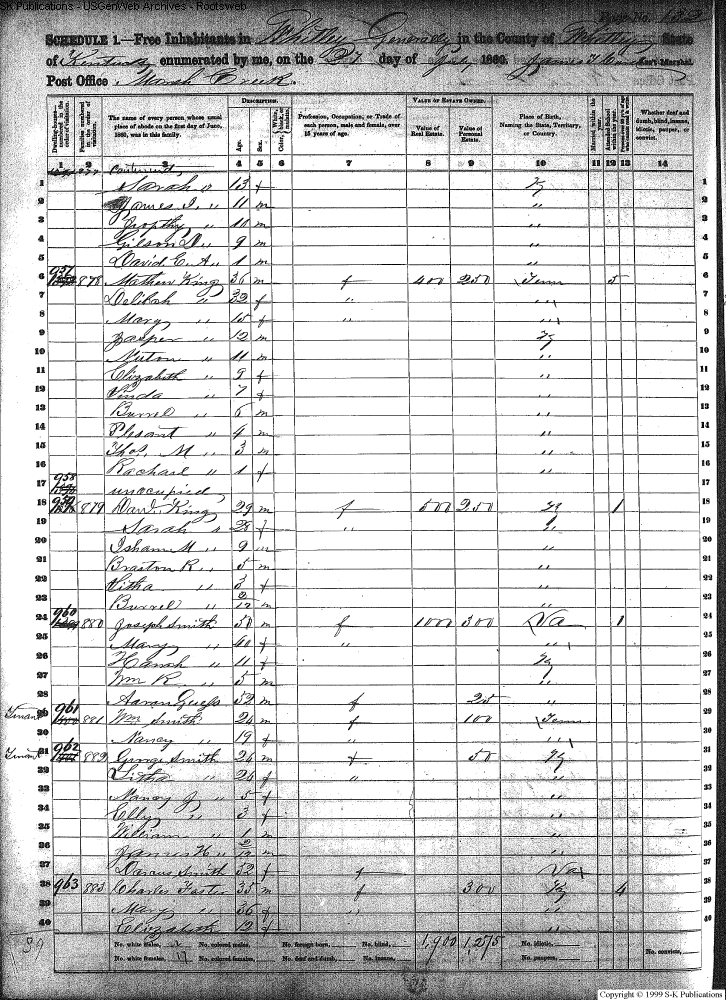 SK Publications - USGenWeb Archives - Rootsweb
Page No.
SCHEDULE 1.—Free Inhabitants in Whitley Generally in the County of Whitley State
of Kentucky enumerated by me, on the 27 day of July 1860. James Ass't Marshal.
Post Office Marsh Creek
Dwelling-houses— numbered in the order of visitation.
Families numbered in the order of visitation.
The name of every person whose usual place of abode on the first day of June, 1860, was in this family.
DESCRIPTION.
Age.
Sex.
Color, White, black, or mulatto.
Profession, Occupation, or Trade of each person, male and female, over 15 years of age.
VALUE OF ESTATE OWNED.
Value of Real Estate.
Value of Personal Estate.
Place of Birth, Naming the State, Territory, or Country.
Married within the year.
Attended School within the year.
Whether deaf and dumb, blind, insane, idiotic, pauper, or convict.
1 2 3 4 5 6 7 8 9 10 11 12 13 14
877 Continued,
1 Sarah " 13 f Ky 1
2 James I. " 11 m " 2
3 " 10 m " 3
4 Gilson D. " 9 m " 4
5 David C. A. " 1 m " 5
6 957 878 Mathew King 36 m f 400 250 Tenn 5 6
7 Delilah " 32 f " " 7
8 Mary " 15 f " " 8
9 Jasper " 12 m Ky 9
10 Nuton " 11 m " 10
11 Elizabeth " 9 f " 11
12 Linda " 7 f " 12
13 Burrel " 6 m " 13
14 Plesant " 4 m " 14
15 Thos. M " 3 m " 15
16 Rachael " 1 f " 16
17 958 unoccupied, 17
18 959 879 Danl. King 29 m f 500 250 Ky 1 18
19 Sarah " 28 f " " 19
20 Isham M " 9 m " 20
21 Braxton R. " 5 m " 21
22 Litha " 3 f " 22
23 Burrel " 2/12 m " 23
24 960 880 Joseph Smith 50 m f 1000 300 Va 1 24
25 Mary " 40 f " " 25
26 Hanah " 11 f Ky 26
27 Wm R. " 5 m " 27
28 Aaron Guess 52 m f 25 " 28
Tenant 29 961 881 Wm Smith 24 m f 100 Tenn 29
30 Nancy " 19 f " " 30
Tenant 31 962 882 George Smith 24 m f 50 Ky 31
32 Litha " 24 f " " 32
33 Nancy J " 5 f " 33
34 Elly " 3 f " 34
35 William " 1 m " 35
36 James H " 2/12 m " 36
37 Darcus Smith 52 f f Va 37
38 963 883 Charles Foster 35 m f 300 Ky 4 38
39 Mary " 36 f " " 39
40 Elizabeth " 12 f " 40
39 No. white males, No. colored males, No. foreign born, No. blind, 1,900 1,275 No. idiotic, No. convicts,
No. white females, 17 No. colored females, No. deaf and dumb, No. insane, No. paupers,
Copyright © 1999 S-K Publications